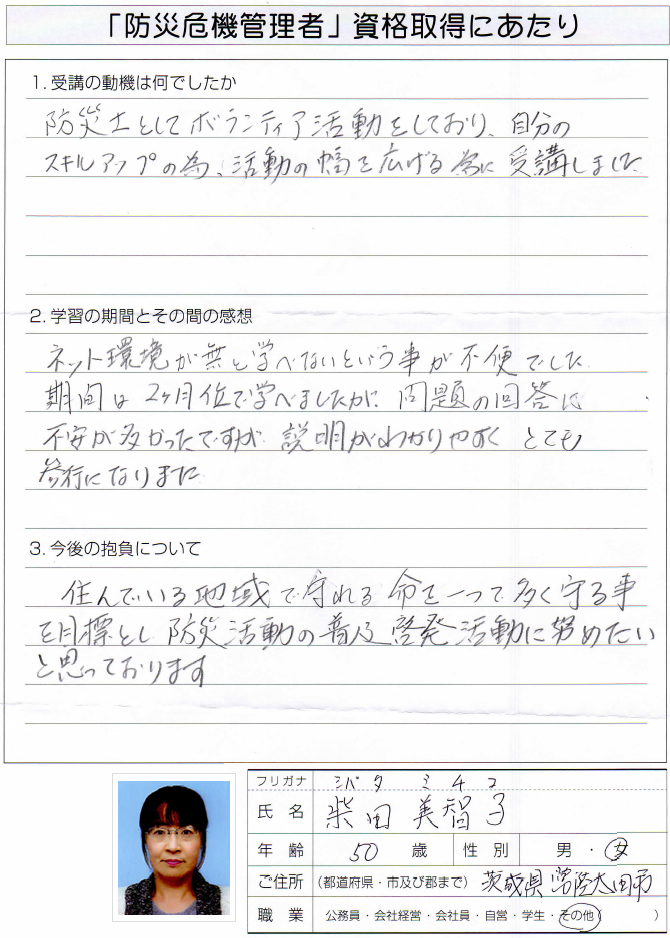 「防災危機管理者」資格取得にあたり
1. 受講の動機は何でしたか
防災士としてボランティア活動をしており、自分の
スキルアップの為、活動の幅を広げる為に受講しました
2. 学習の期間とその間の感想
ネット環境が無と学べないという事が不便でした
期間は2ヶ月位で学べましたが 問題の回答は
不安が多かったですが 説明がわかりやすく とても
参行になりました
3. 今後の抱負について
住んでいる地域で守れる命を一つで多く守る事
を目標とし 防災活動の普及 啓発活動に努めたい
と思っております
フリガナ シバタ ミチコ
氏名 柴田 美智子
年齢 50 歳 性別 男・女
ご住所 (都道府県・市及び郡まで) 茨城県常陸太田市
職業 公務員・会社経営・会社員・自営・学生・その他( )